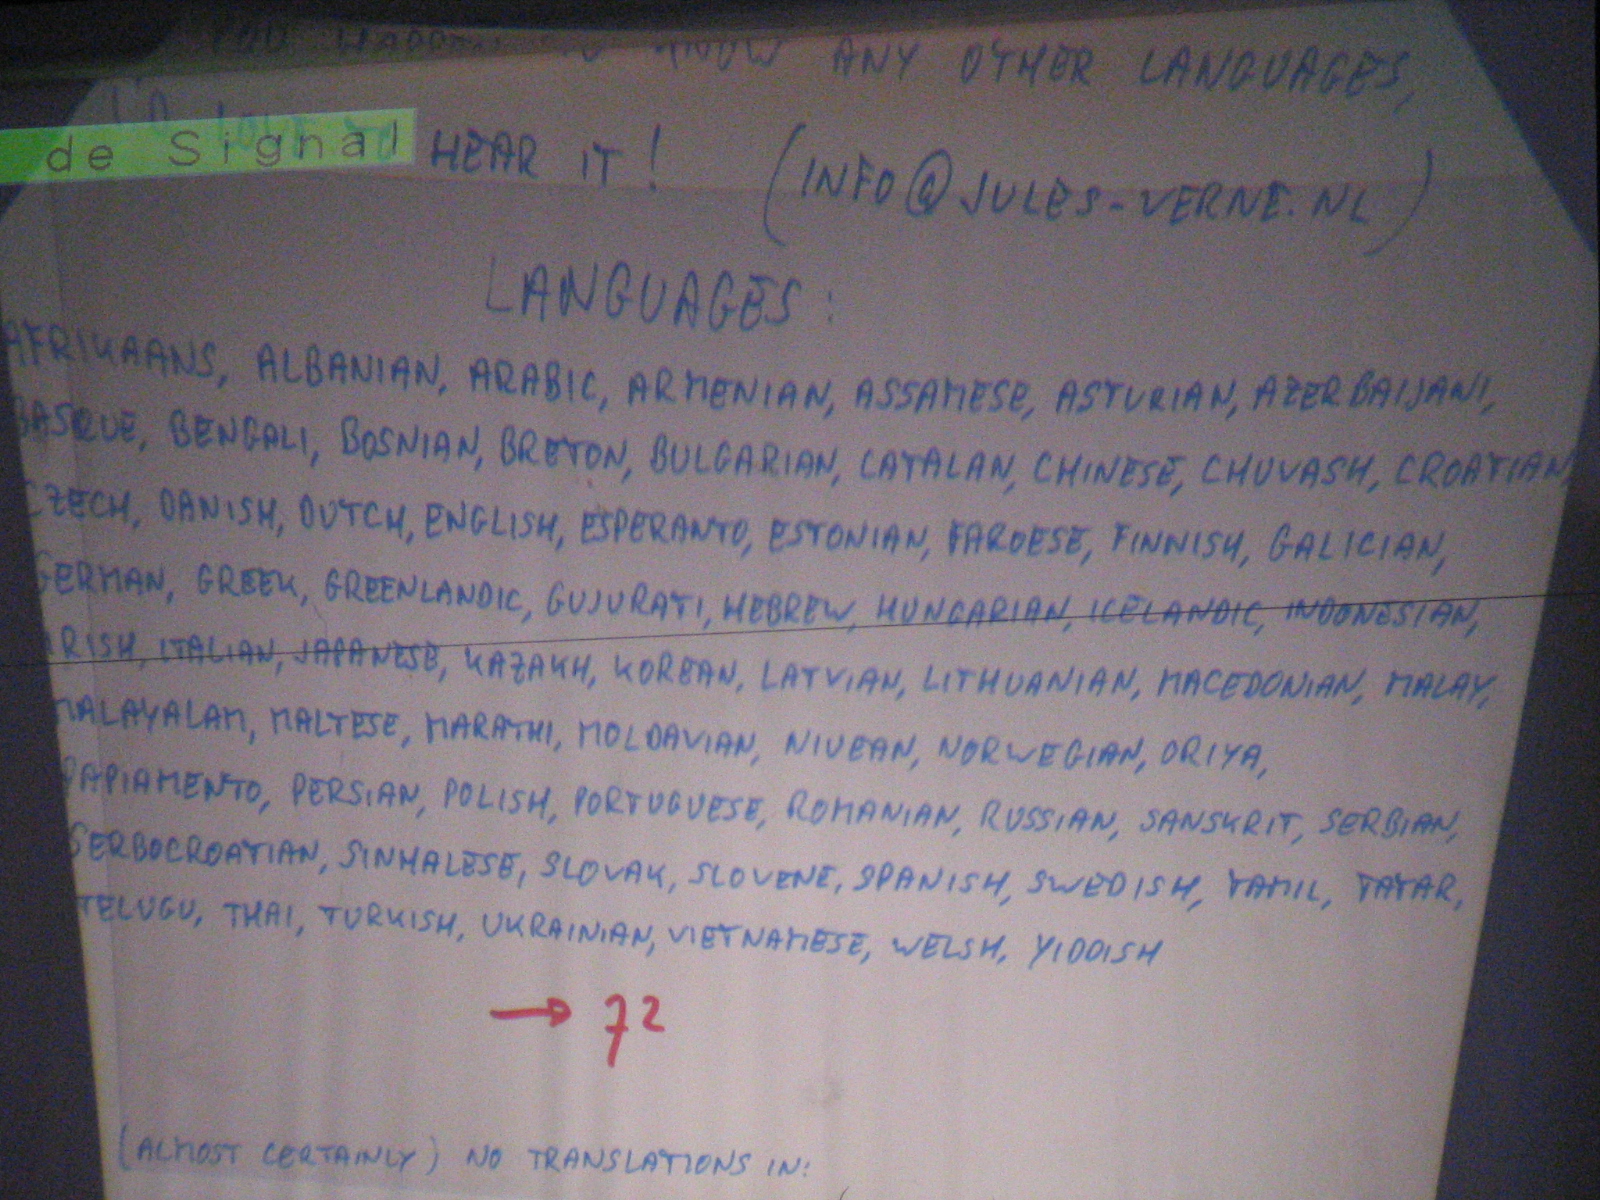 YOU HAPPEN TO KNOW ANY OTHER LANGUAGES,
I'D LOVE TO HEAR IT! (INFO@JULES-VERNE.NL)
de Signal
LANGUAGES:
AFRIKAANS, ALBANIAN, ARABIC, ARMENIAN, ASSAMESE, ASTURIAN, AZERBAIJANI,
BASQUE, BENGALI, BOSNIAN, BRETON, BULGARIAN, CATALAN, CHINESE, CHUVASH, CROATIAN,
CZECH, DANISH, DUTCH, ENGLISH, ESPERANTO, ESTONIAN, FAROESE, FINNISH, GALICIAN,
GERMAN, GREEK, GREENLANDIC, GUJURATI, HEBREW, HUNGARIAN, ICELANDIC, INDONESIAN,
IRISH, ITALIAN, JAPANESE, KAZAKH, KOREAN, LATVIAN, LITHUANIAN, MACEDONIAN, MALAY,
MALAYALAM, MALTESE, MARATHI, MOLDAVIAN, NIUEAN, NORWEGIAN, ORIYA,
PAPIAMENTO, PERSIAN, POLISH, PORTUGUESE, ROMANIAN, RUSSIAN, SANSKRIT, SERBIAN,
SERBOCROATIAN, SINHALESE, SLOVAK, SLOVENE, SPANISH, SWEDISH, TAMIL, TATAR,
TELUGU, THAI, TURKISH, UKRAINIAN, VIETNAMESE, WELSH, YIDDISH
→ 72
(ALMOST CERTAINLY) NO TRANSLATIONS IN: